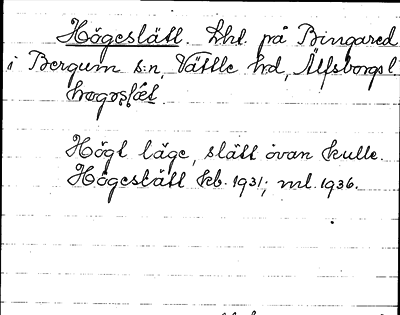 Högeslätt. Lht. på Bingared
i Bergum s:n, Vättle hd, Älfsborgs l
Högt läge, slätt ovan kulle.
Högeslätt kb. 1931; ml. 1936.